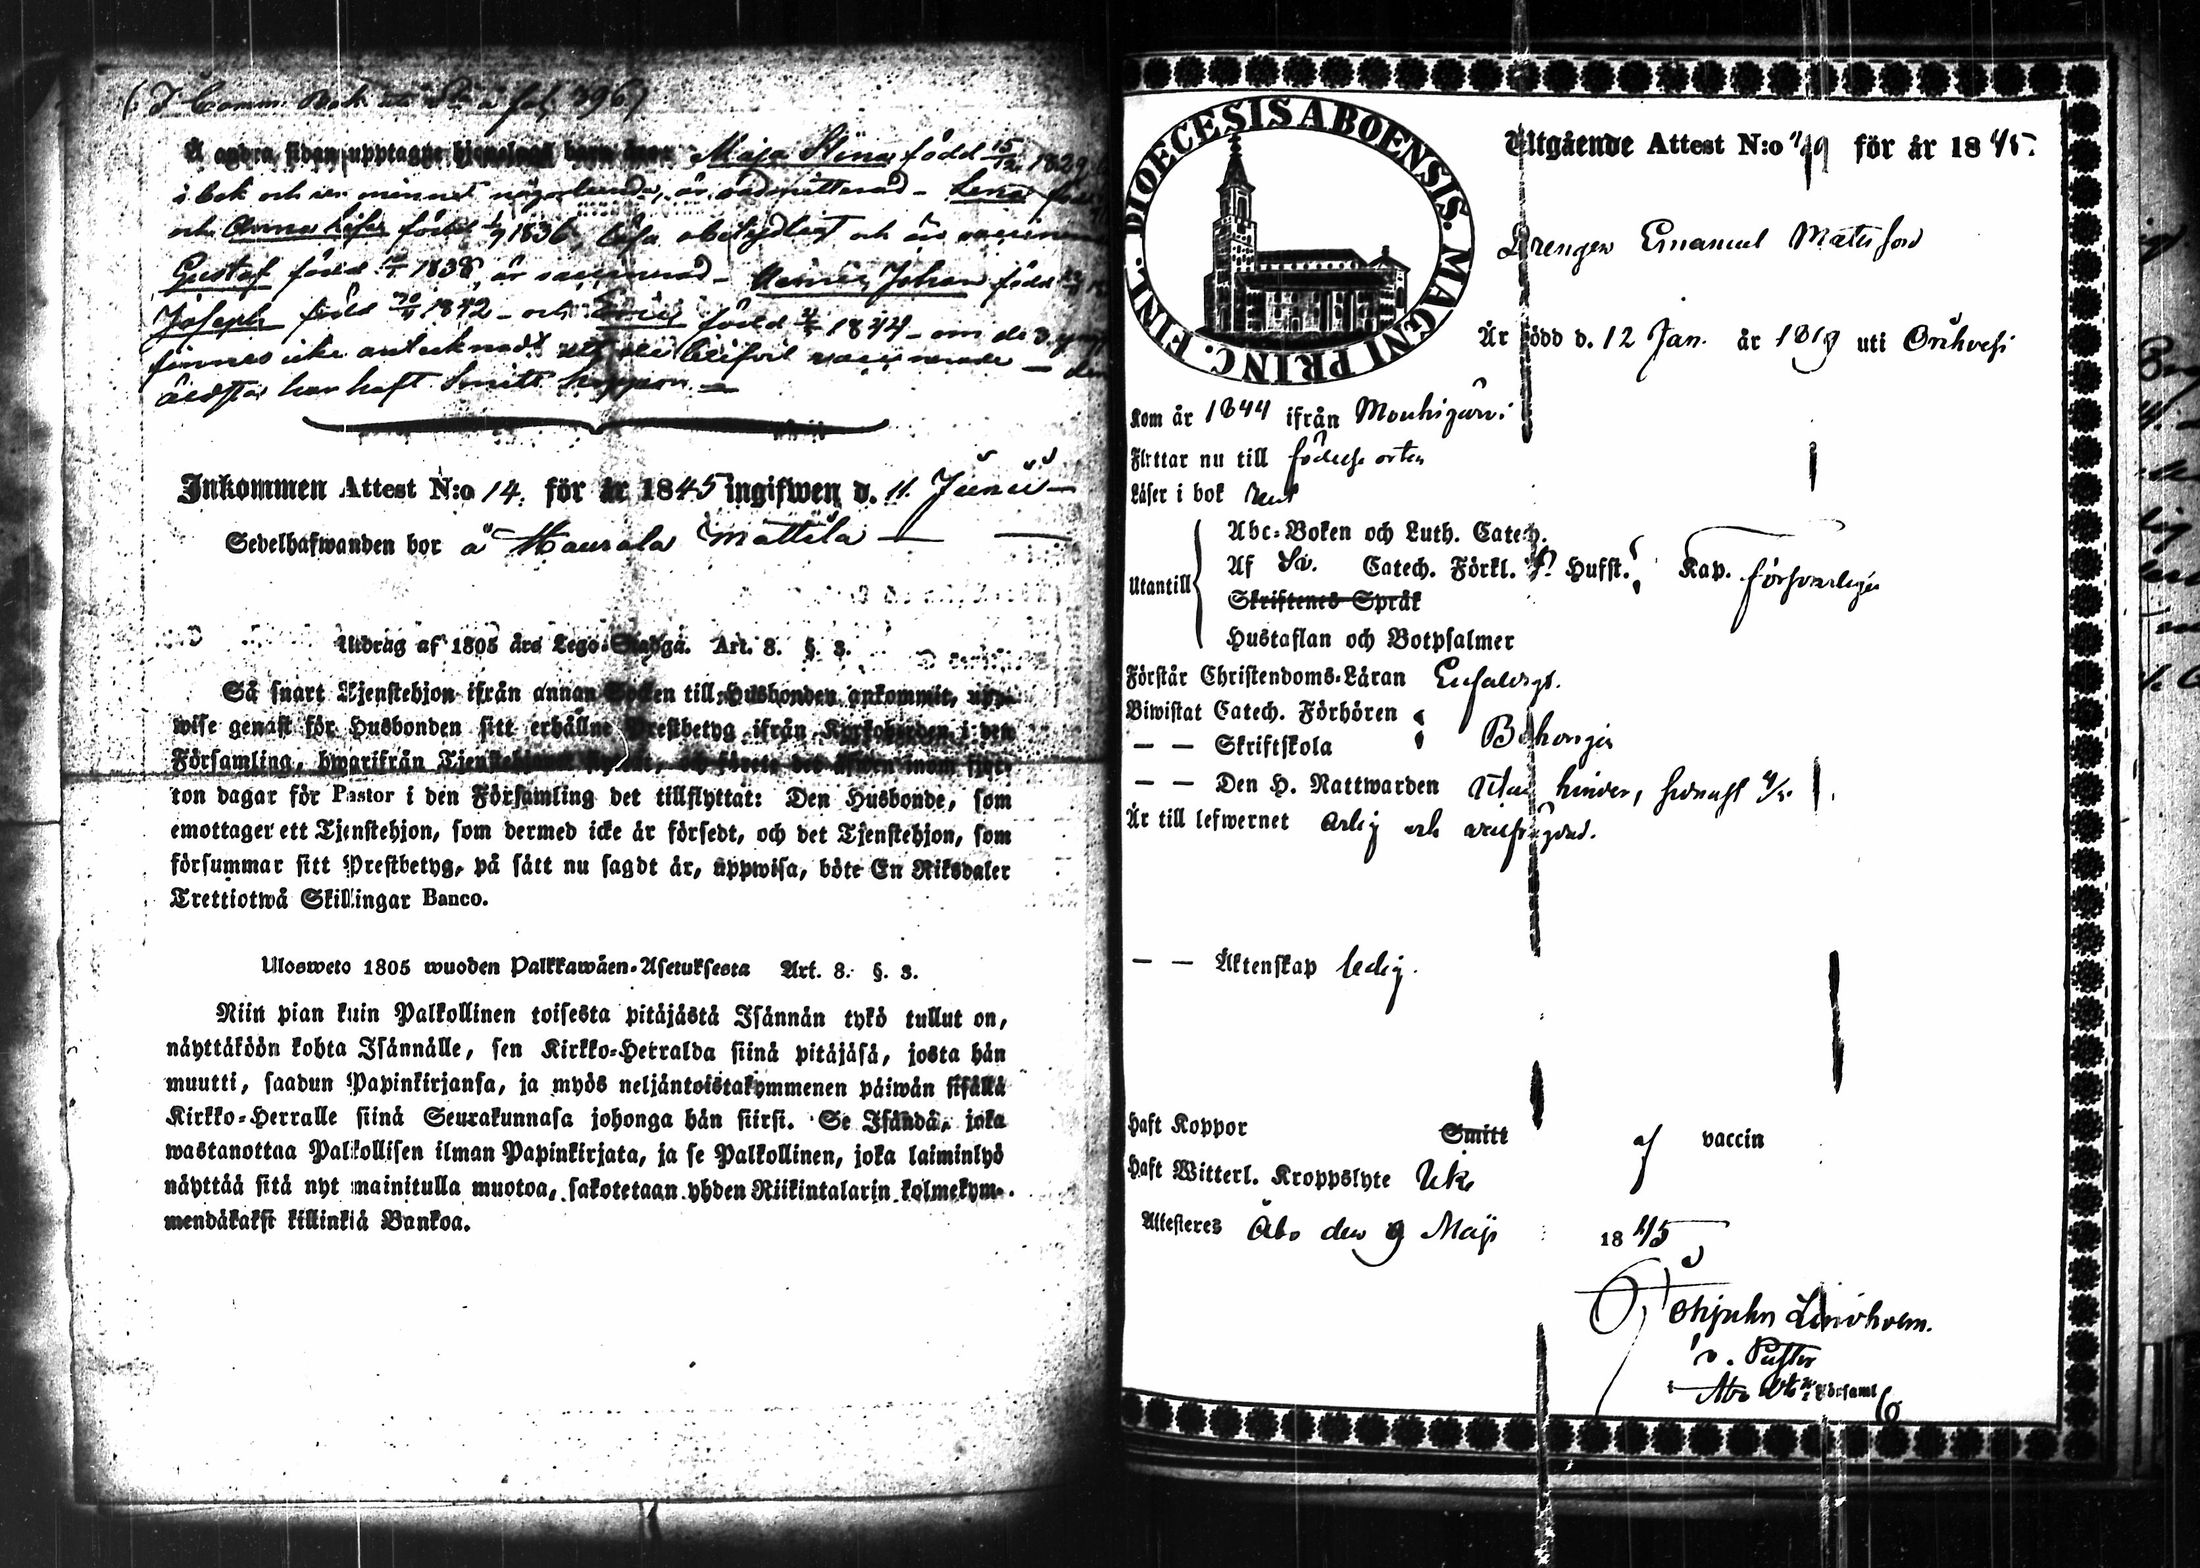 (: I Comm. Bok fol. 396)
Å andra sidan upptagne hjonelags barn äro: Maja Stina född 15/12 1829
i bok och minnet någorlunda, är admitterad – Lena född
och Anna Lisa född 1836, läsa obetydligt och äro
Gustaf född 1838, är vaccinerad – Johan född
Joseph född 20/4 1842 – och född 1844 – om de 3 yngsta
finnes icke antecknadt att de blifvit vaccinerade – den
äldsta har haft Smitt koppor –
Inkommen Attest N:o 14. för år 1845 ingifwen d. 11. Junii –
Sedelhafwanden bor å Haurala Mattila –
Utdrag af 1805 års Lego-Stadga. Art. 8. §. 3.
Så snart Tjenstehjon ifrån annan Socken till Husbonden ankommit, upp-
wise genast för Husbonden sitt erhållne Prestbetyg ifrån Kyrkoherden i den
Församling, hwarifrån Tjenstehjonet flyttat, och förete det äfwen inom fjor-
ton dagar för Pastor i den Församling det tillflyttat: Den Husbonde, som
emottager ett Tjenstehjon, som dermed icke är försedt, och det Tjenstehjon, som
försummar sitt Prestbetyg, på sätt nu sagdt är, uppwisa, böte En Riksdaler
Trettiotwå Skillingar Banco.
Ulosweto 1805 wuoden Palkkawäen-Asetuksesta Art. 8. §. 3.
Niin pian kuin Palkollinen toisesta pitäjästä Isännän tykö tullut on,
näyttäköön kohta Isännälle, sen Kirkko-Herralda siinä pitäjäsä, josta hän
muutti, saadun Papinkirjansa, ja myös neljäntoistakymmenen päiwän sisällä
Kirkko-Herralle siinä Seurakunnasa johonga hän siirsi. Se Isändä, joka
wastanottaa Palkollisen ilman Papinkirjata, ja se Palkollinen, joka laiminlyö
näyttää sitä nyt mainitulla muotoa, sakotetaan yhden Riikintalarin kolmekym-
mendäkaksi killinkiä Bankoa.
DIOECESIS ABOENSIS. MAGNI PRINC. FINL.
Utgående Attest N:o för år 1845.
Drengen Emanuel Matsson
Är född d. 12 Jan. år 1819 uti Orihvesi
Kom år 1844 ifrån Mouhijärvi
Flyttar nu till födelse orten
Läser i bok rent
Utantill
Abc-Boken och Luth. Catech.
Af Sv. Catech. Förkl. Husst. Kap. försvarligen
Skriftenes Språk
Hustaflan och Botpsalmer
Förstår Christendoms-Läran Enfaldigt.
Biwistat Catech. Förhören
– – Skriftskola Behörigen
– – Den H. Nattwarden utan hinder, senast
Är till lefwernet ärlig och
– – Äktenskap ledig.
Haft Koppor Smitt af vaccin
Haft Witterl. Kroppslyte Icke
Attesteres Åbo den 9 Maji 1845
Lindholm.
v. Pastor
Församl